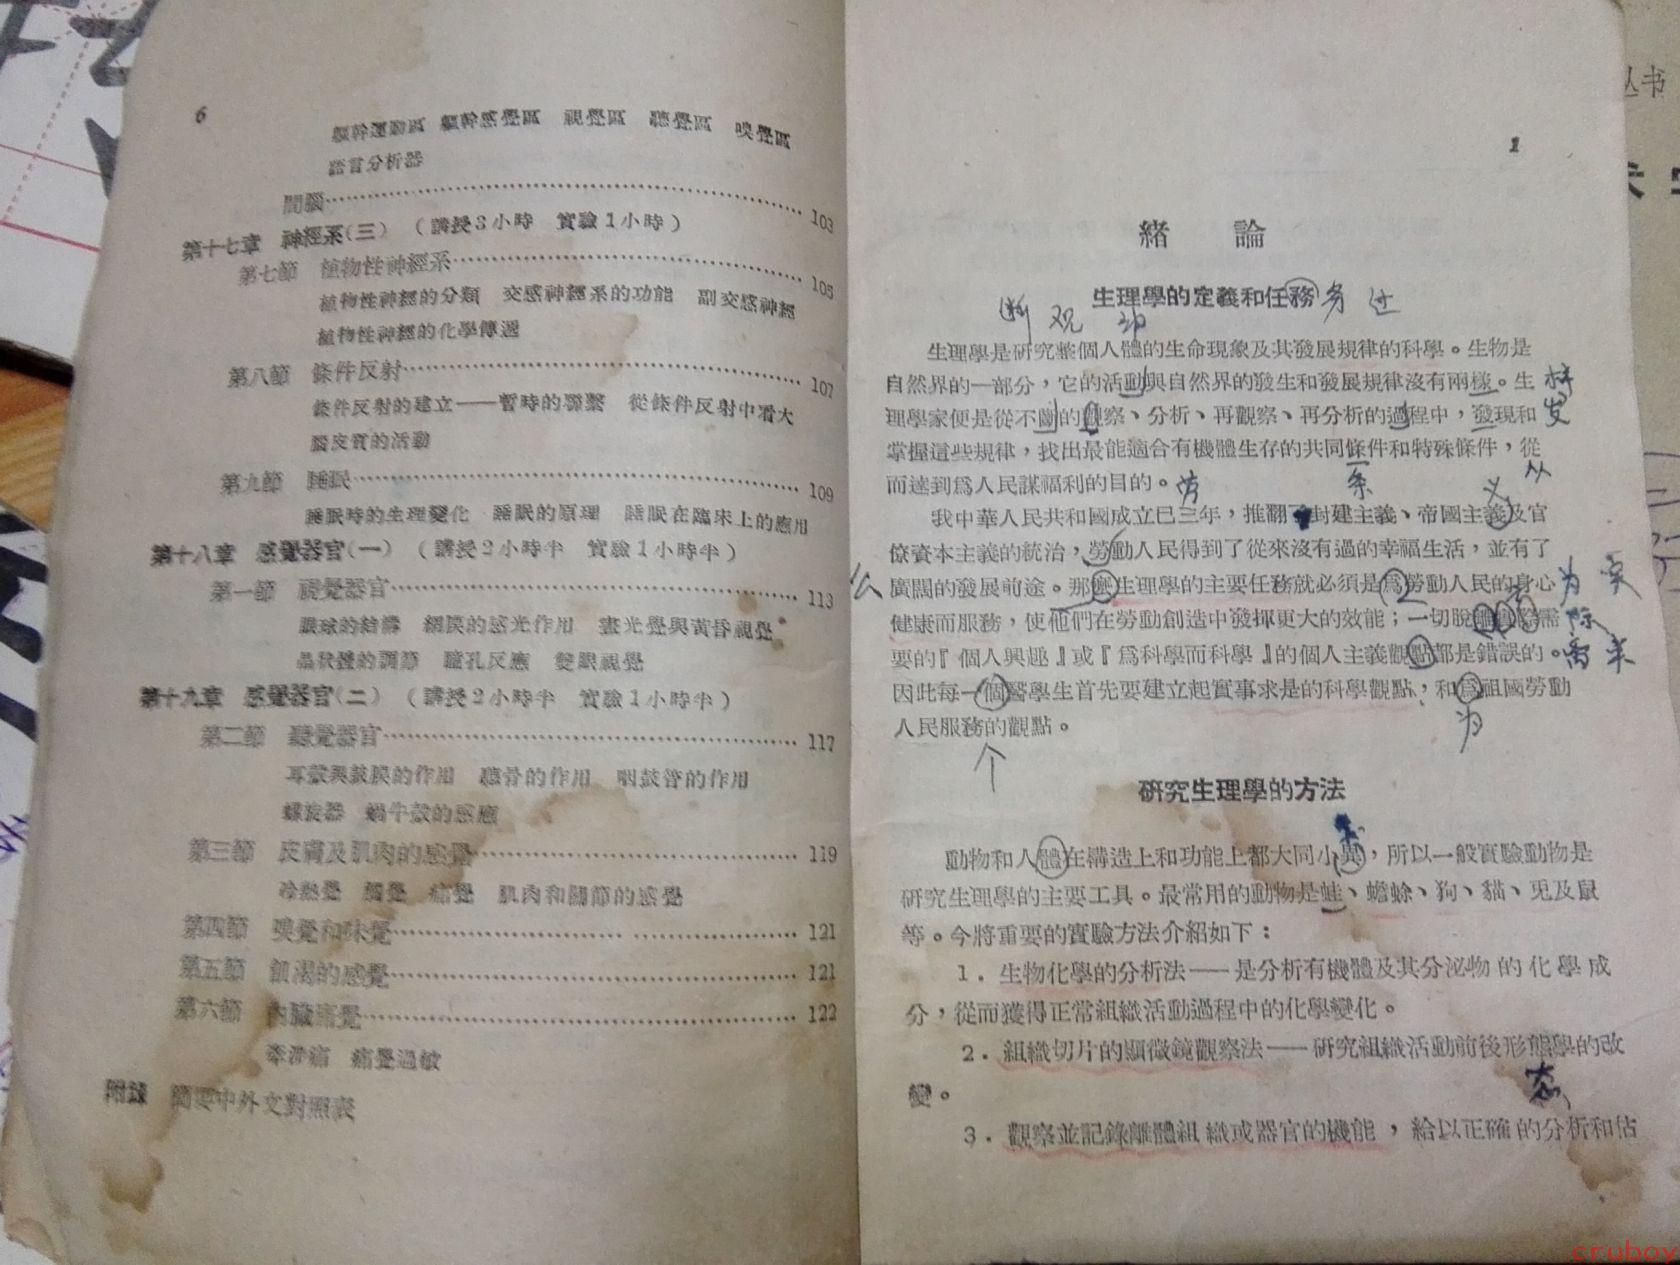 6
軀幹運動區 軀幹感覺區 視覺區 聽覺區 嗅覺區
語言分析器
間腦 103
第十七章 神經系(三) (講授3小時 實驗1小時)
第七節 植物性神經系 105
植物性神經的分類 交感神經系的功能 副交感神經
植物性神經的化學傳遞
第八節 條件反射 107
條件反射的建立——暫時的聯繫 從條件反射中看大
腦皮質的活動
第九節 睡眠 109
睡眠時的生理變化 睡眠的原理 睡眠在臨床上的應用
第十八章 感覺器官(一) (講授2小時半 實驗1小時半)
第一節 視覺器官 113
眼球的結構 網膜的感光作用 晝光覺與黃昏視覺
晶狀體的調節 瞳孔反應 雙眼視覺
第十九章 感覺器官(二) (講授2小時半 實驗1小時半)
第二節 聽覺器官 117
耳殼與鼓膜的作用 聽骨的作用 咽鼓管的作用
螺旋器 蝸牛殼的感應
第三節 皮膚及肌肉的感覺 119
冷熱覺 觸覺 痛覺 肌肉和關節的感覺
第四節 嗅覺和味覺 121
第五節 飢渴的感覺 121
第六節 內臟痛覺 122
牽涉痛 痛覺過敏
附錄 簡要中外文對照表
1
緒 論
生理學的定義和任務 务 过
断 观 动
生理學是研究整個人體的生命現象及其發展規律的科學。生物是
自然界的一部分，它的活動與自然界的發生和發展規律沒有兩樣。生 样
理學家便是從不斷的觀察、分析、再觀察、再分析的過程中，發現和 发
掌握這些規律，找出最能適合有機體生存的共同條件和特殊條件，從
从
而達到爲人民謀福利的目的。 劳 条 义
我中華人民共和國成立已三年，推翻了封建主義、帝國主義及官
僚資本主義的統治，勞動人民得到了從來沒有過的幸福生活，並有了
么 廣闊的發展前途。那麼生理學的主要任務就必須是爲勞動人民的身心 为 实
健康而服務，使他們在勞動創造中發揮更大的效能；一切脫離實際需 际
要的『個人興趣』或『爲科學而科學』的個人主義觀點都是錯誤的。 离
因此每一個醫學生首先要建立起實事求是的科學觀點，和爲祖國勞動
人民服務的觀點。 为
个
研究生理學的方法
動物和人體在構造上和功能上都大同小異，所以一般實驗動物是
研究生理學的主要工具。最常用的動物是蛙、蟾蜍、狗、貓、兎及鼠
等。今將重要的實驗方法介紹如下：
1. 生物化學的分析法——是分析有機體及其分泌物的化學成
分，從而獲得正常組織活動過程中的化學變化。
2. 組織切片的顯微鏡觀察法——研究組織活動前後形態學的改
態 变
變。
3. 觀察並記錄離體組織或器官的機能，給以正確的分析和估
丛书
cruboy